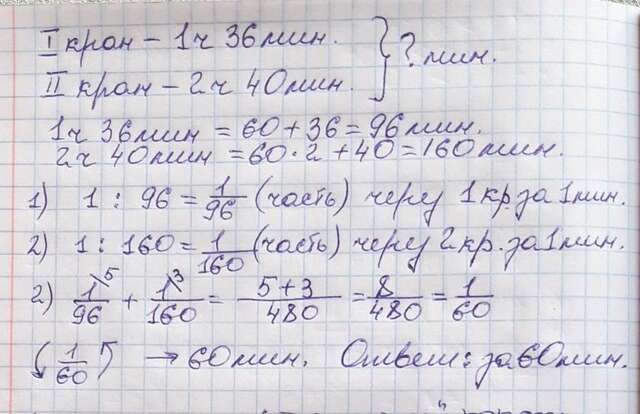 I кран – 1 ч 36 мин. } ? мин.
II кран – 2 ч 40 мин.
1 ч 36 мин = 60 + 36 = 96 мин.
2 ч 40 мин = 60 · 2 + 40 = 160 мин.
1) 1 : 96 = 1/96 (часть) черу 1 кр. за 1 мин.
2) 1 : 160 = 1/160 (часть) черу 2 кр. за 1 мин.
2) 1\5/96 + 1\3/160 = 5+3/480 = 8/480 = 1/60
(1/60) → 60 мин. Ответ: за 60 мин.